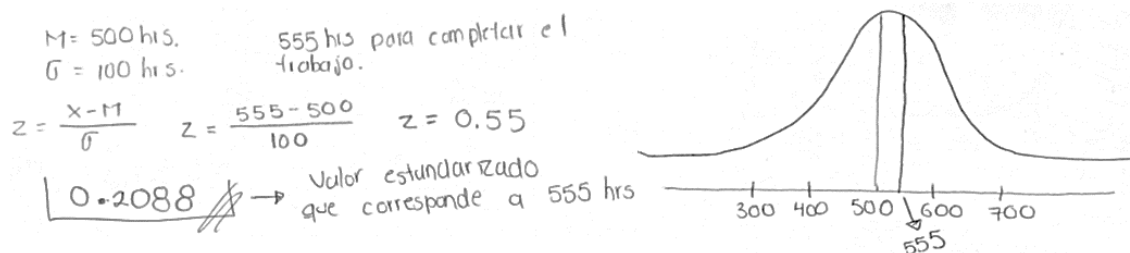 M = 500 hrs.
σ = 100 hrs.
555 hrs para completar el
trabajo.
z = (x - M) / σ   z = (555 - 500) / 100   z = 0.55
0.2088 → Valor estandarizado
que corresponde a 555 hrs
300 400 500 600 700
555